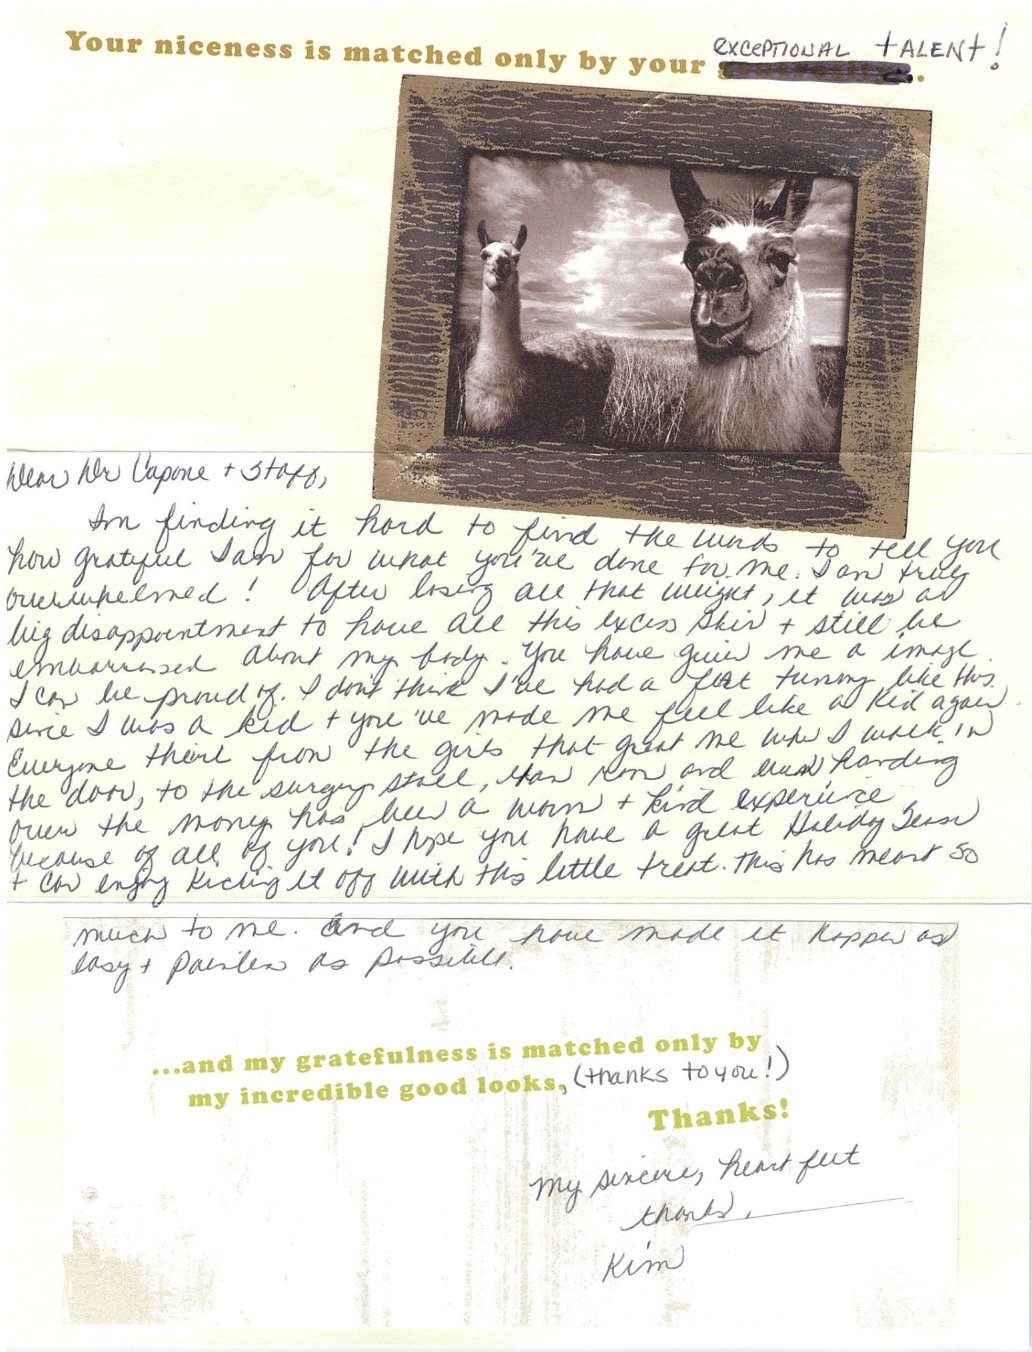 Your niceness is matched only by your EXCEPTIONAL TALENT!
Dear Dr Capone + Staff,
Im finding it hard to find the words to tell you
how grateful I am for what you've done for me. I am truly
overwhelmed! After losing all that weight, it was a
big disappointment to have all this excess skin + still be
embarrassed about my body. You have given me a image
I can be proud of. I don't think I've had a flat tummy like this
since I was a kid + you've made me feel like a kid again.
Everyone there from the girls that greet me when I walk in
the door, to the surgery staff, and even handing
over the money has been a warm + kind experience
because of all of you! I hope you have a great Holiday Season
+ can enjoy kicking it off with this little treat. This has meant so
much to me. And you have made it happen as
easy + painless as possible.
...and my gratefulness is matched only by
my incredible good looks, (thanks to you!)
Thanks!
My sincere, heart felt
thanks,
Kim